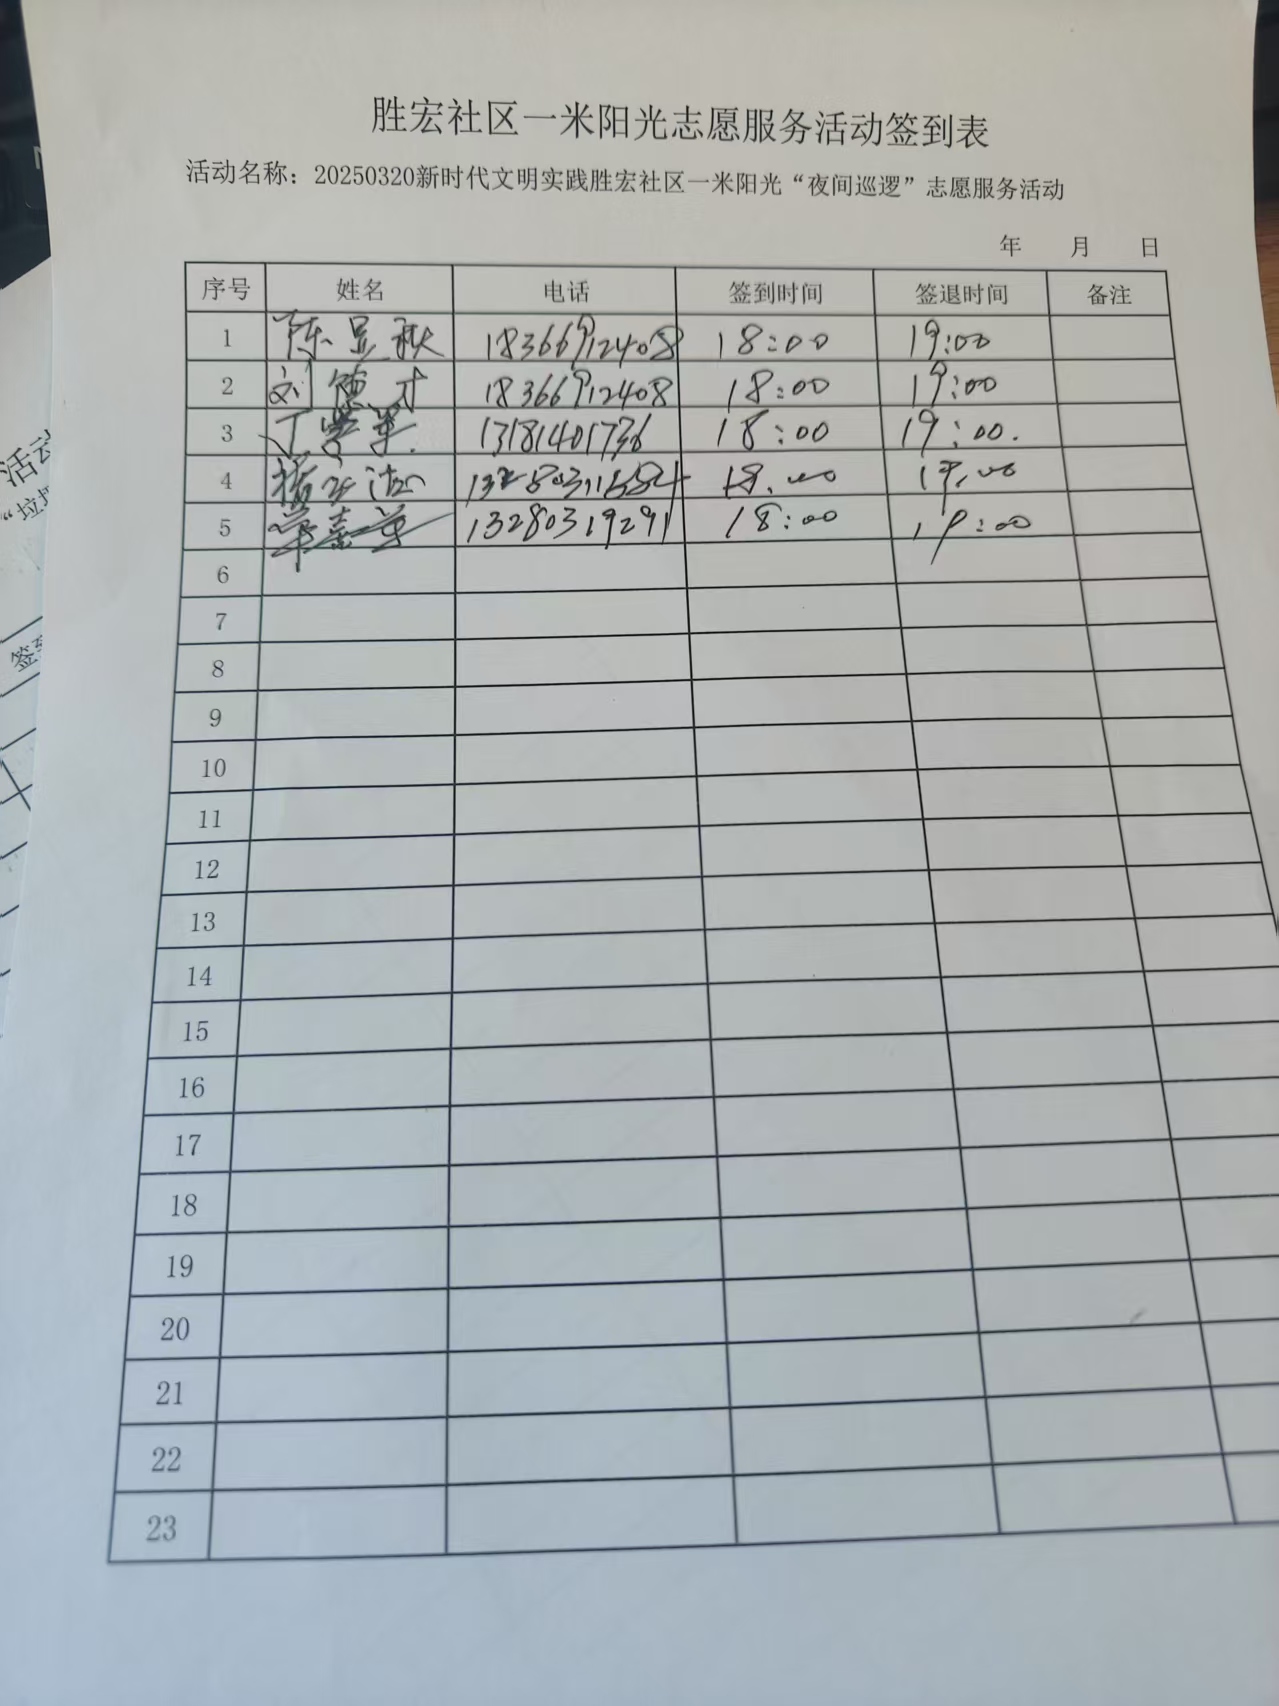 胜宏社区一米阳光志愿服务活动签到表
活动名称：20250320新时代文明实践胜宏社区一米阳光“夜间巡逻”志愿服务活动
年 月 日
序号 姓名 电话 签到时间 签退时间 备注
1 陈显秋 18366912408 18:00 19:00
2 刘德才 18366912408 18:00 19:00
3 丁学军 13181401736 18:00 19:00.
4 杨 18:00 19:00
5 13280319291 18:00 19:00
6
7
8
9
10
11
12
13
14
15
16
17
18
19
20
21
22
23
活动
“垃圾
签到